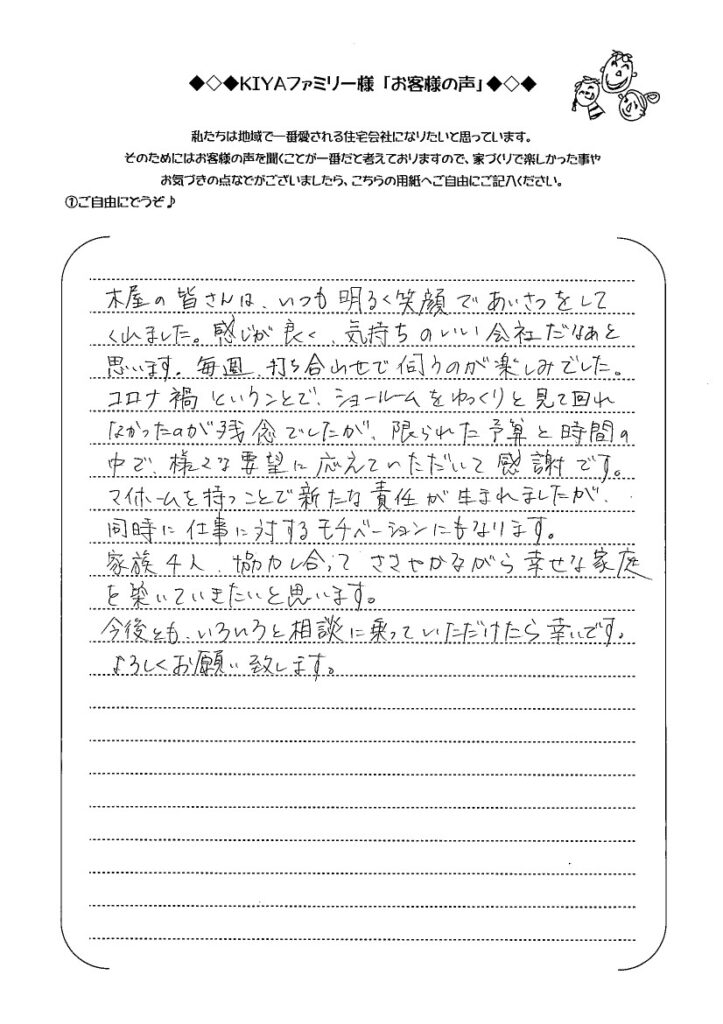 ◆◇◆KIYAファミリー様「お客様の声」◆◇◆
私たちは地域で一番愛される住宅会社になりたいと思っています。
そのためにはお客様の声を聞くことが一番だと考えておりますので、家づくりで楽しかった事や
お気づきの点などがございましたら、こちらの用紙へご自由にご記入ください。
①ご自由にどうぞ♪
木屋の皆さんは、いつも明るく笑顔であいさつをして
くれました。感じが良く、気持ちのいい会社だなぁと
思います。毎週、打ち合わせで伺うのが楽しみでした。
コロナ禍ということで、ショールームをゆっくりと見て回れ
なかったのが残念でしたが、限られた予算と時間の
中で、様々な要望に応えていただいて感謝です。
マイホームを持つことで新たな責任が生まれましたが、
同時に仕事に対するモチベーションにもなります。
家族4人、協力し合って ささやかながら幸せな家庭
を築いていきたいと思います。
今後とも、いろいろと相談に乗っていただけたら幸いです。
よろしくお願い致します。